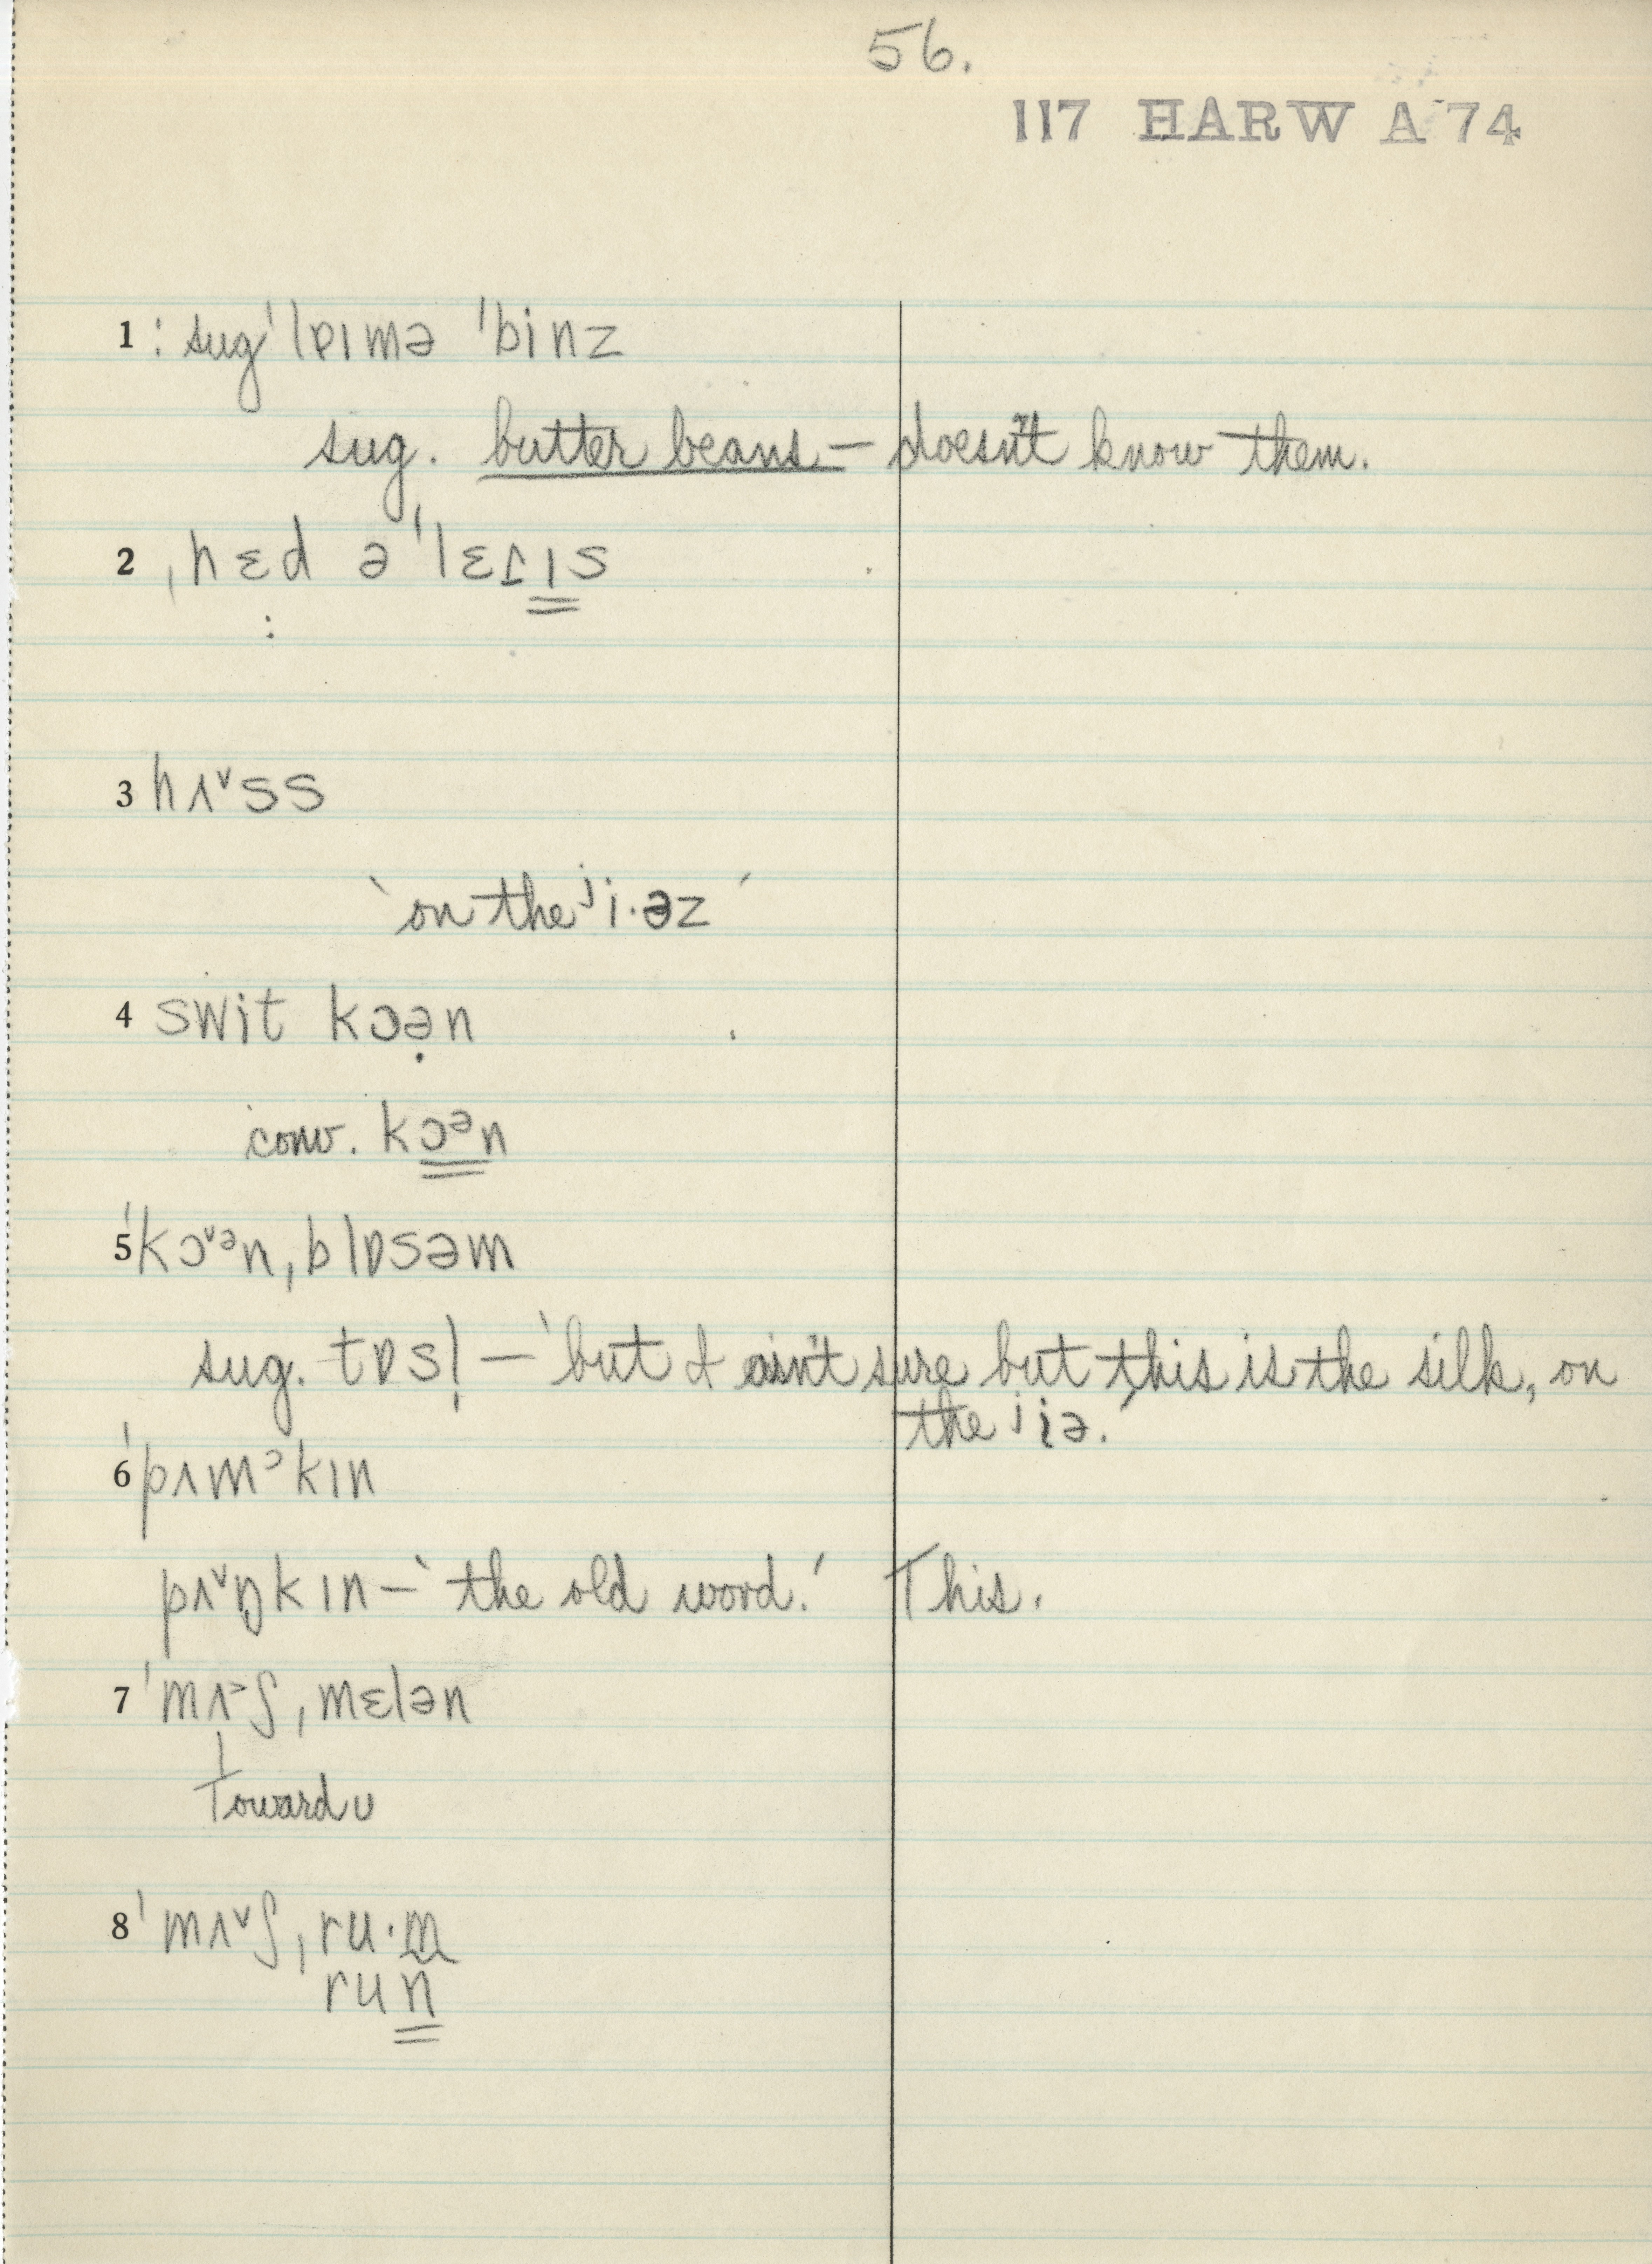 56.
117 HARW A 74
1 : sug ˈlɐɪmə ˈbinz
sug. butter beans – doesn't know them.
2 ˌhɛd ə ˈlɛɾɪs
3 hʌ˅ss
‘on the ʲi·əz’
4 swit kɔə̣n
conv. kɔᵊn
5 ˈkɔ˅ᵊnˌblɒsəm
sug. tɒsl̩ – ‘but I ain't sure but this is the silk, on
the ʲiə.’
6 ˈpʌmᵓkɪn
pʌ˅ŋkɪn – ‘the old word.’ This.
7 ˈmʌ˃ʃˌmɛlən
Toward ʊ
8 ˈmʌ˅ʃˌru·m
run